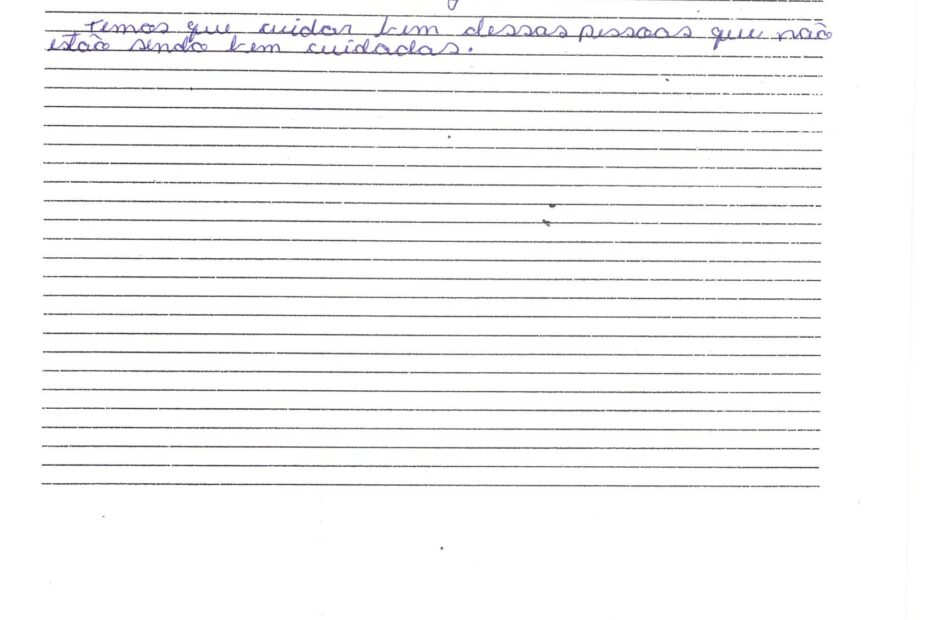 temos que cuidar bem dessas pessoas que não
estão sendo bem cuidadas.